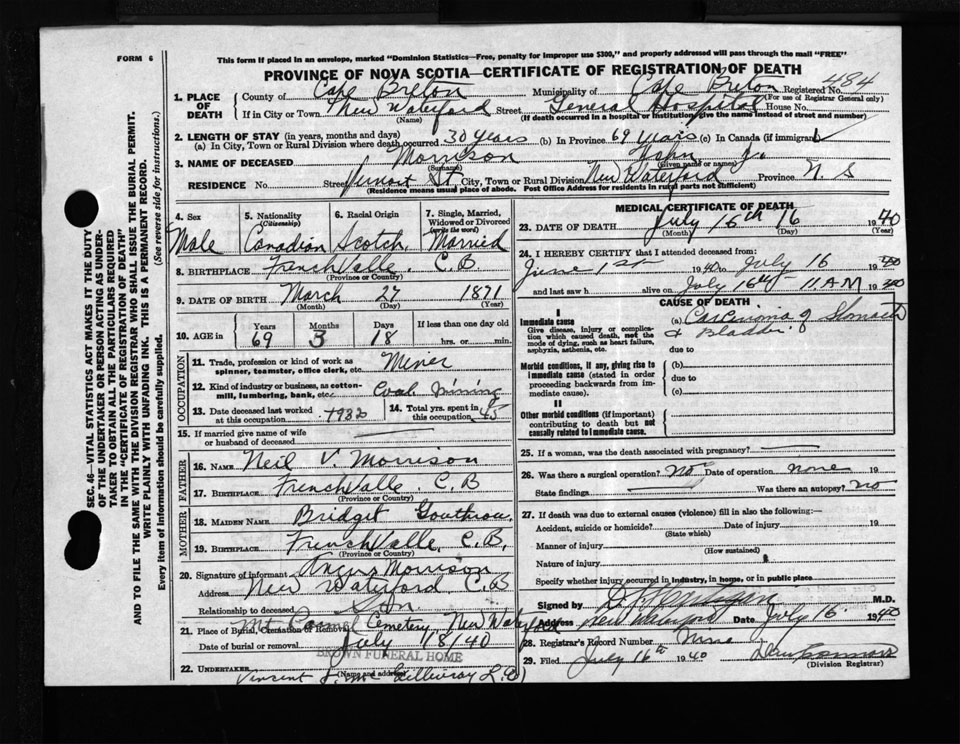 FORM 6
This form if placed in an envelope, marked "Dominion Statistics—Free, penalty for improper use $300," and properly addressed will pass through the mail "FREE"
PROVINCE OF NOVA SCOTIA—CERTIFICATE OF REGISTRATION OF DEATH
SEC. 46—VITAL STATISTICS ACT MAKES IT THE DUTY
OF THE UNDERTAKER OR PERSON ACTING AS UNDER-
TAKER TO OBTAIN ALL THE PARTICULARS REQUIRED
IN THE "CERTIFICATE OF REGISTRATION OF DEATH"
AND TO FILE THE SAME WITH THE DIVISION REGISTRAR WHO SHALL ISSUE THE BURIAL PERMIT.
WRITE PLAINLY WITH UNFADING INK. THIS IS A PERMANENT RECORD.
Every item of information should be carefully supplied. (See reverse side for instructions.)
1. PLACE OF DEATH
County of Cape Breton Municipality of Cape Breton Registered No. 484
(For use of Registrar General only)
If in City or Town New Waterford Street General Hospital House No.
(Name) (If death occurred in a hospital or institution, give the name instead of street and number)
2. LENGTH OF STAY (in years, months and days)
(a) In City, Town or Rural Division where death occurred 30 Years (b) In Province 69 Years (c) In Canada (if immigrant)
3. NAME OF DECEASED Morrison John J.
(Surname) (Given name or names)
RESIDENCE No. Street Vernort St. City, Town or Rural Division New Waterford Province N. S
(Residence means usual place of abode. Post Office Address for residents in rural parts not sufficient)
4. Sex Male
5. Nationality (Citizenship) Canadian
6. Racial Origin Scotch
7. Single, Married, Widowed or Divorced (write the word) Married
8. BIRTHPLACE French Valle. C. B.
(Province or Country)
9. DATE OF BIRTH March 27 1871
(Month) (Day) (Year)
10. AGE in Years 69 Months 3 Days 18 If less than one day old
hrs. or min.
OCCUPATION
11. Trade, profession or kind of work as spinner, teamster, office clerk, etc. Miner
12. Kind of industry or business, as cotton-mill, lumbering, bank, etc. Coal Mining
13. Date deceased last worked at this occupation 1932
14. Total yrs. spent in this occupation 45
15. If married give name of wife or husband of deceased
FATHER
16. NAME Neil V. Morrison
17. BIRTHPLACE French Valle. C. B
(Province or Country)
MOTHER
18. MAIDEN NAME Bridget Gouthrou
19. BIRTHPLACE French Valle, C. B.
(Province or Country)
20. Signature of informant Angus Morrison
Address New Waterford C. B
Relationship to deceased Son.
21. Place of Burial, Cremation or Removal Mt Carmel Cemetery New Waterford
Date of burial or removal July 18/40
BROWN FUNERAL HOME
22. UNDERTAKER Vincent J. Mc Gillivray
(Name and address)
MEDICAL CERTIFICATE OF DEATH
23. DATE OF DEATH July 16th 16 1940
(Month) (Day) (Year)
24. I HEREBY CERTIFY that I attended deceased from:
June 1st 1940 to July 16 1940
and last saw h alive on July 16th 11 AM 1940
CAUSE OF DEATH
I
Immediate cause (a) Carcinoma of Stomach
& Bladder.
Give disease, injury or complication which caused death, not the mode of dying, such as heart failure, asphyxia, asthenia, etc.
due to
Morbid conditions, if any, giving rise to immediate cause (stated in order proceeding backwards from immediate cause).
(b)
due to
(c)
II
Other morbid conditions (if important) contributing to death but not causally related to immediate cause.
25. If a woman, was the death associated with pregnancy?
26. Was there a surgical operation? No Date of operation none 19
State findings Was there an autopsy? No
27. If death was due to external causes (violence) fill in also the following:—
Accident, suicide or homicide? Date of injury 19
(State which)
Manner of injury
(How sustained)
Nature of injury
Specify whether injury occurred in industry, in home, or in public place
Signed by M.D.
Address New Waterford Date July 16 1940
28. Registrar's Record Number
29. Filed July 16th 1940
(Division Registrar)